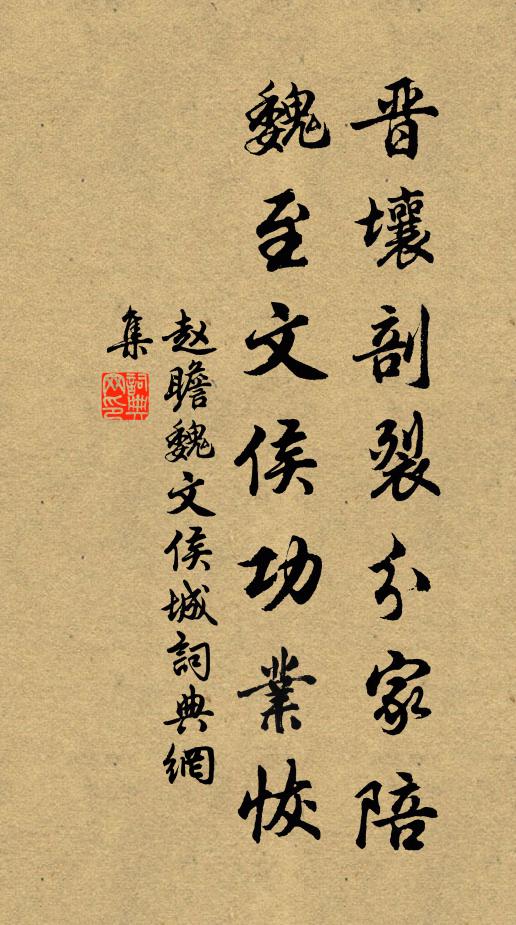 晋壤剖裂分家陪
魏至文侯功業恢
赵瞻魏文侯城詞典網
集
詞典網印